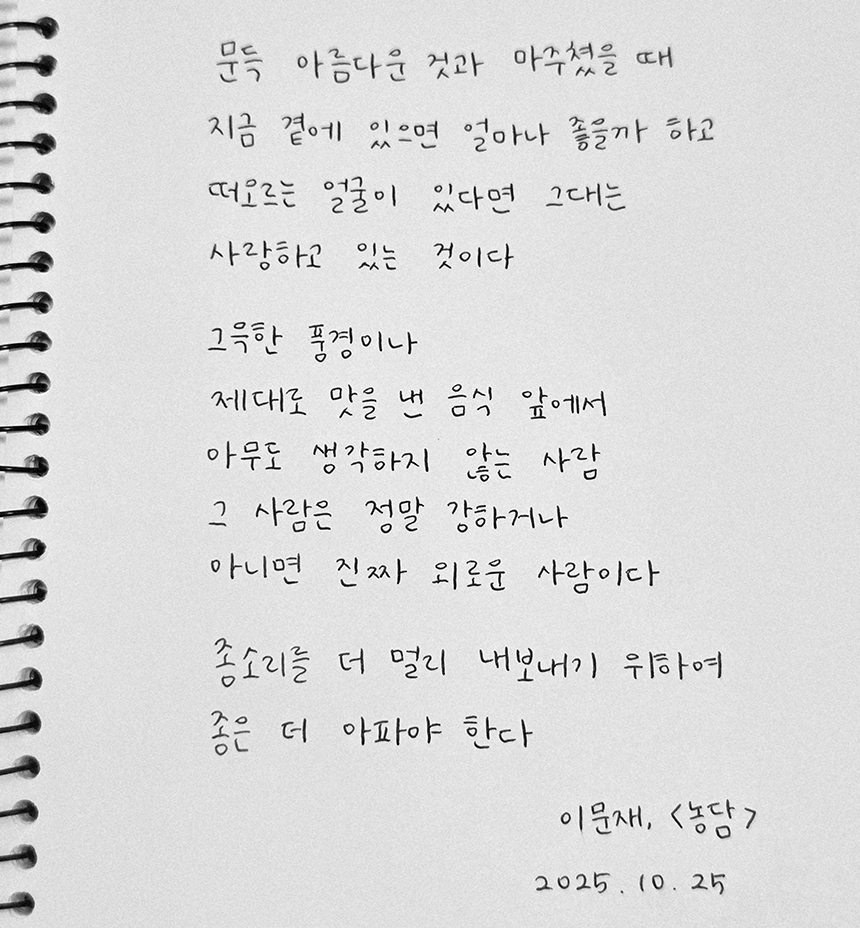 문득 아름다운 것과 마주쳤을 때
지금 곁에 있으면 얼마나 좋을까 하고
떠오르는 얼굴이 있다면 그대는
사랑하고 있는 것이다
그윽한 풍경이나
제대로 맛을 낸 음식 앞에서
아무도 생각하지 않는 사람
그 사람은 정말 강하거나
아니면 진짜 외로운 사람이다
종소리를 더 멀리 내보내기 위하여
종은 더 아파야 한다
이문재, <농담>
2025. 10. 25